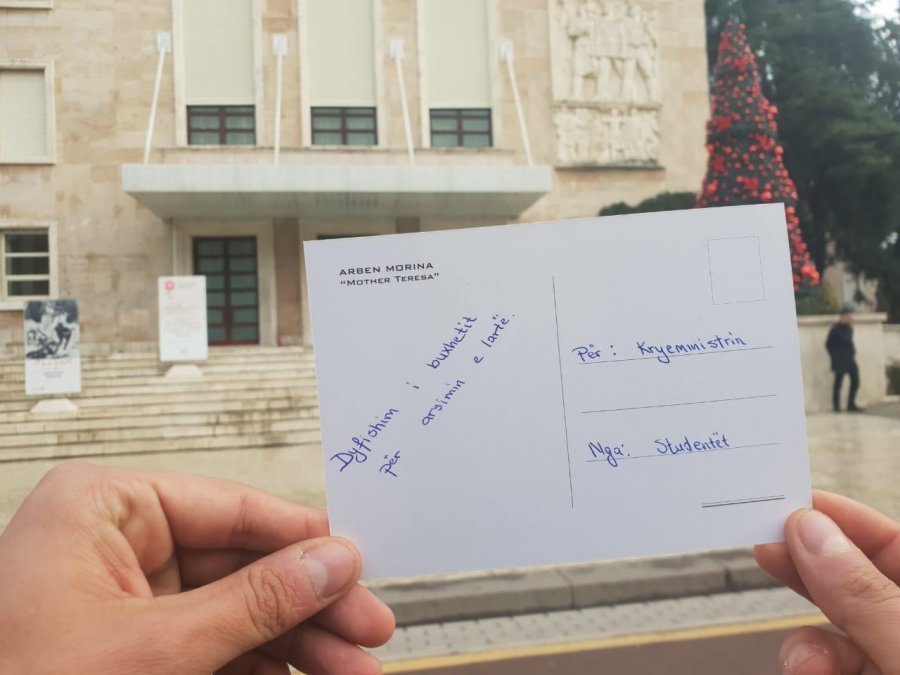 ARBEN MORINA
"MOTHER TERESA"
Dyfishim i buxhetit
për arsimin e lartë.
Për: Kryeministrin
Nga: Studentët